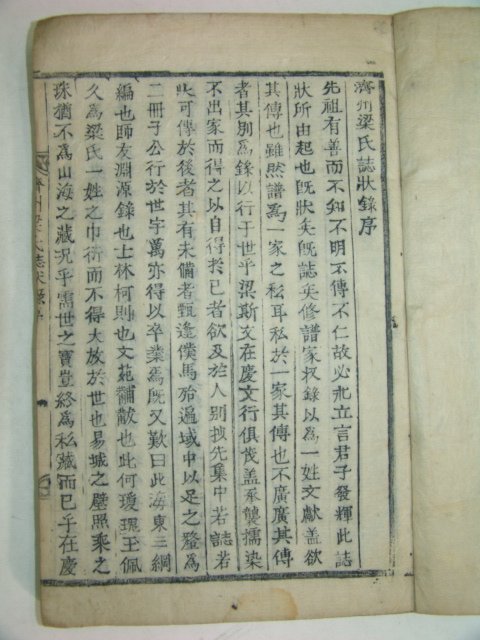 濟州梁氏誌狀錄序
先祖有善而不知不明不傳不仁故必永立言君子發輝此誌
狀所由起也旣狀矣旣誌矣修譜家収錄以爲一姓文獻盖欲
其傳也雖然譜爲一家之私耳私於一家其傳也不廣廣其傳
者其別爲錄以行于世乎梁斯文在慶文行俱茂盖承襲擩染
不出家而得之以自得於已者欲及於人別抜先集中若誌若
狀可傳於後者其有未備者甄逢僕馬殆遍域中以足之釐爲
二冊子公行於世宇萬亦得以卒業焉旣又歎曰此海東三綱
編也師友淵源錄也士林柯則也文苑黼黻也此何瓊琨玉佩
久爲梁氏一姓之巾衍而不得大放於世也易城之壁照乘之
珠猶不爲山海之藏况乎需世之寶豈終爲私藏而已乎在慶
濟州梁氏誌狀錄序